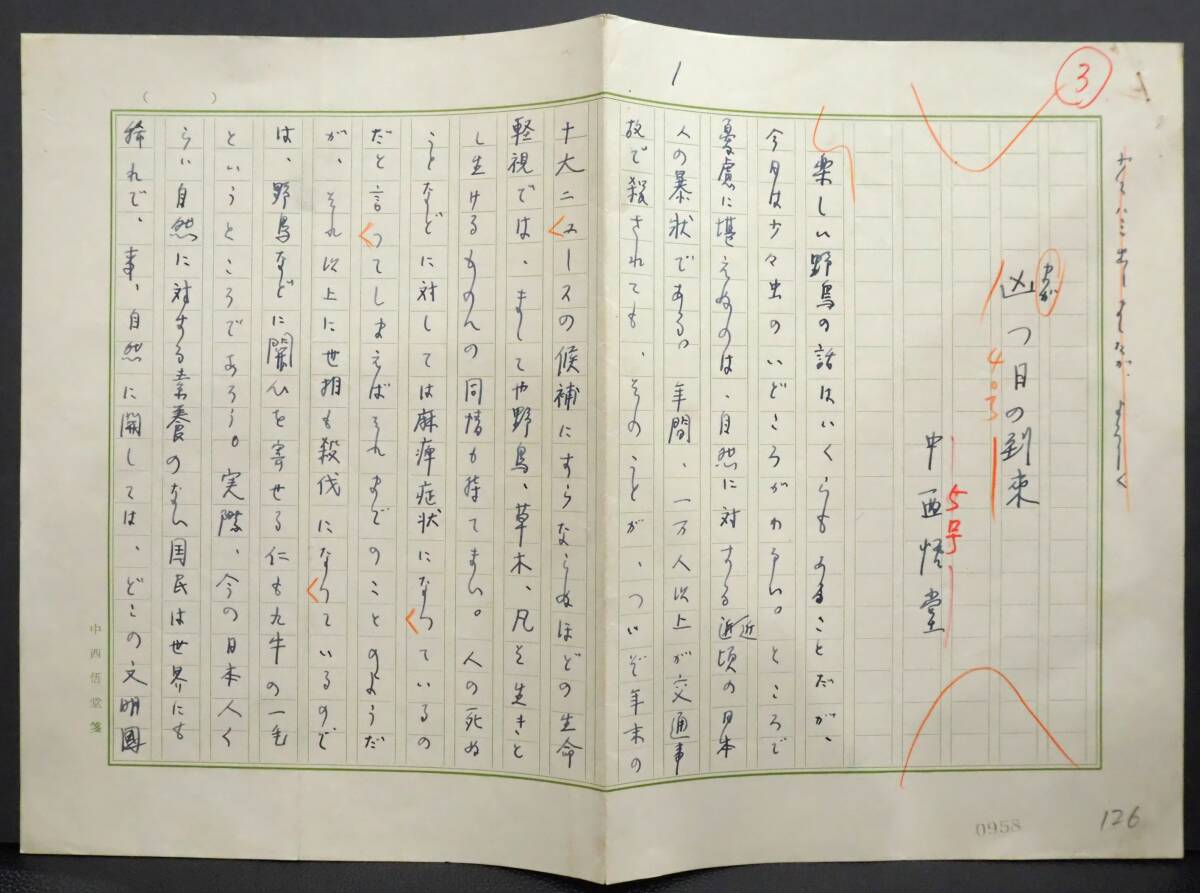 3
1
凶つ日の到来
まが
4.5
中西悟堂
5号
楽しい野鳥の話はいくらもあることだが、
今日は少々虫のいどころがわるい。ところで
憂慮に堪えぬのは、自然に対する近頃の日本
近
人の暴状である。年間、一万人以上が交通事
故で殺されても、そのことが、ついぞ年末の
十大ニュースの候補にすらならぬほどの生命
軽視では、ましてや野鳥、草木、凡そ生きと
し生けるものへの同情も持てまい。人の死ぬ
ことなどに対しては麻痺症状になっているの
だと言ってしまえばそれまでのことのようだ
が、それ以上に世相も殺伐になっているので
は、野鳥などに関心を寄せる仁も九牛の一毛
というところであろう。実際、今の日本人く
らい自然に対する素養のない国民は世界にも
稀れで、事、自然に関しては、どこの文明國
中西悟堂箋
0958
126